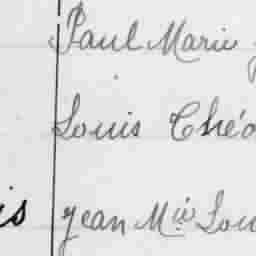 Paul Marie
Louis Théo
is Jean Mie Lou